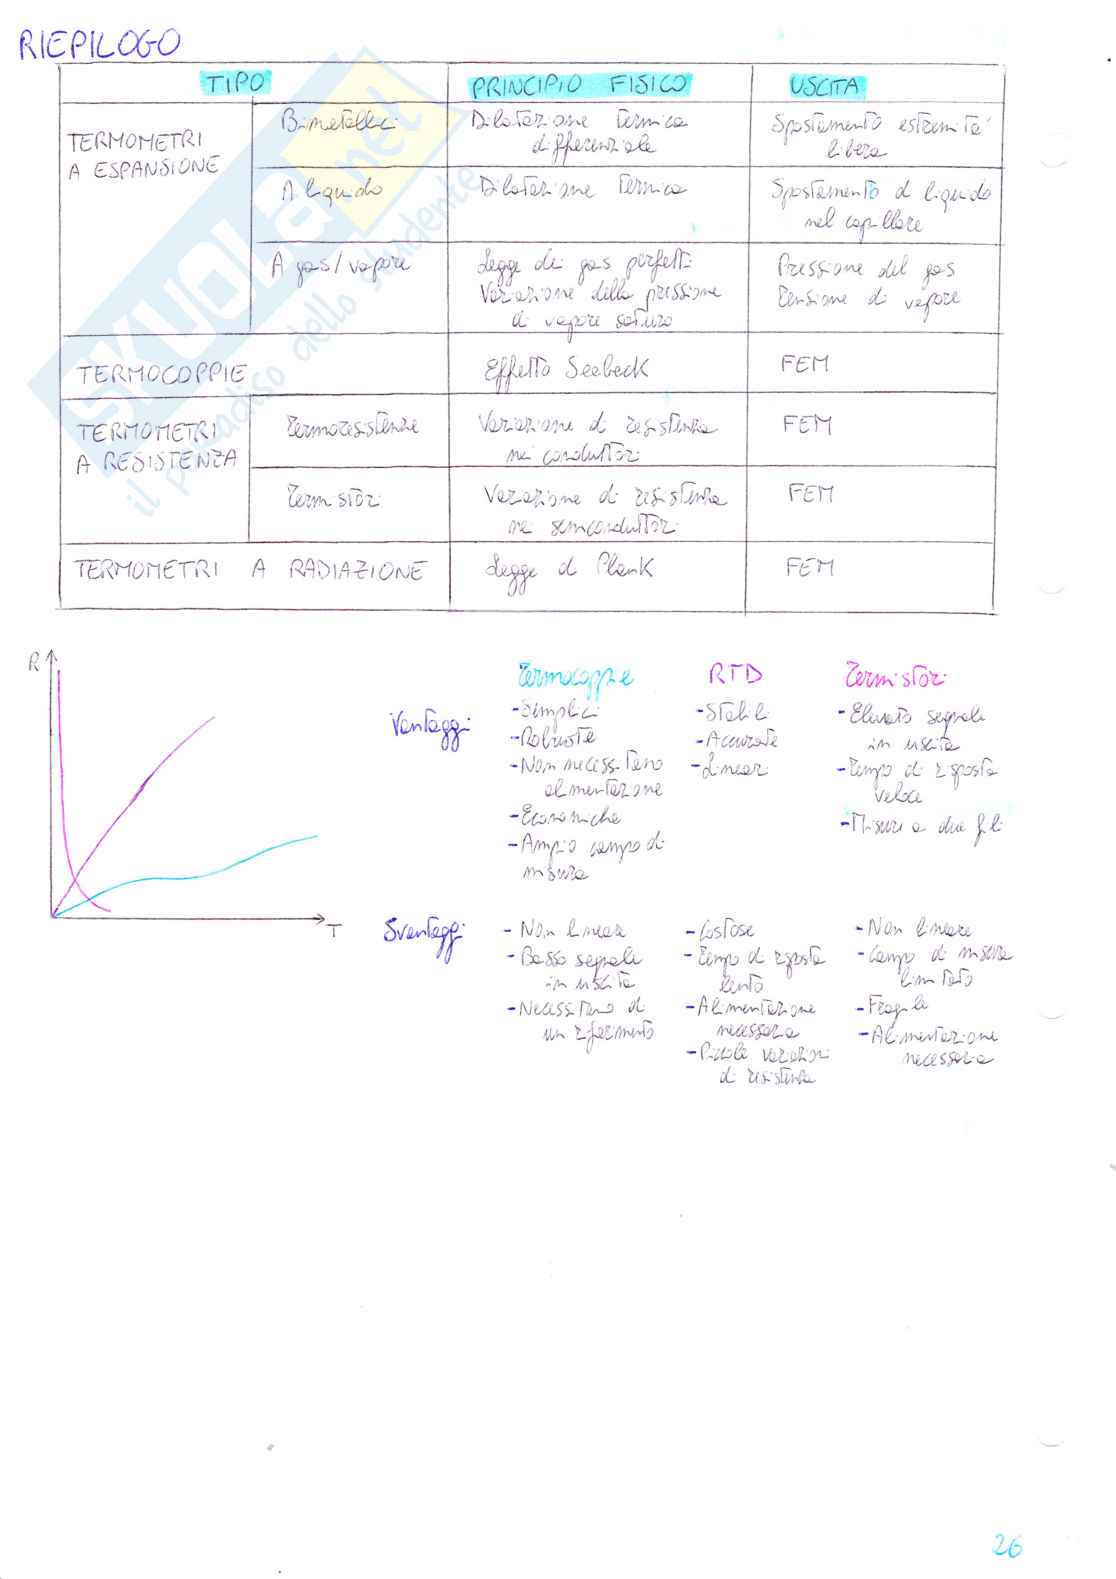 RIEPILOGO
TIPO PRINCIPIO FISICO USCITA
TERMOMETRI
A ESPANSIONE
Bimetallici
Dilatazione termica
differenziale
Spostamento estremità
libera
A liquido
Dilatazione termica
Spostamento di liquido
nel capillare
A gas/vapore
Legge dei gas perfetti
Variazione della pressione
di vapore saturo
Pressione del gas
Tensione di vapore
TERMOCOPPIE
Effetto Seebeck
FEM
TERMOMETRI
A RESISTENZA
Termoresistenze
Variazione di resistenza
nei conduttori
FEM
Termistori
Variazione di resistenza
nei semiconduttori
FEM
TERMOMETRI A RADIAZIONE
Legge di Plank
FEM
SKUOLA.net
il paradiso dello studente
R
T
Termocoppie RTD Termistori
Vantaggi
- Semplici
- Robuste
- Non necessitano
alimentazione
- Economiche
- Ampio campo di
misura
- Stabili
- Accurate
- Lineari
- Elevato segnale
in uscita
- Tempo di risposta
veloce
- Misure a due fili
Svantaggi
- Non lineare
- Basso segnale
in uscita
- Necessitano di
un riferimento
- Costose
- Tempo di risposta
lento
- Alimentazione
necessaria
- Piccole variazioni
di resistenza
- Non lineare
- Campo di misura
limitato
- Fragile
- Alimentazione
necessaria
26